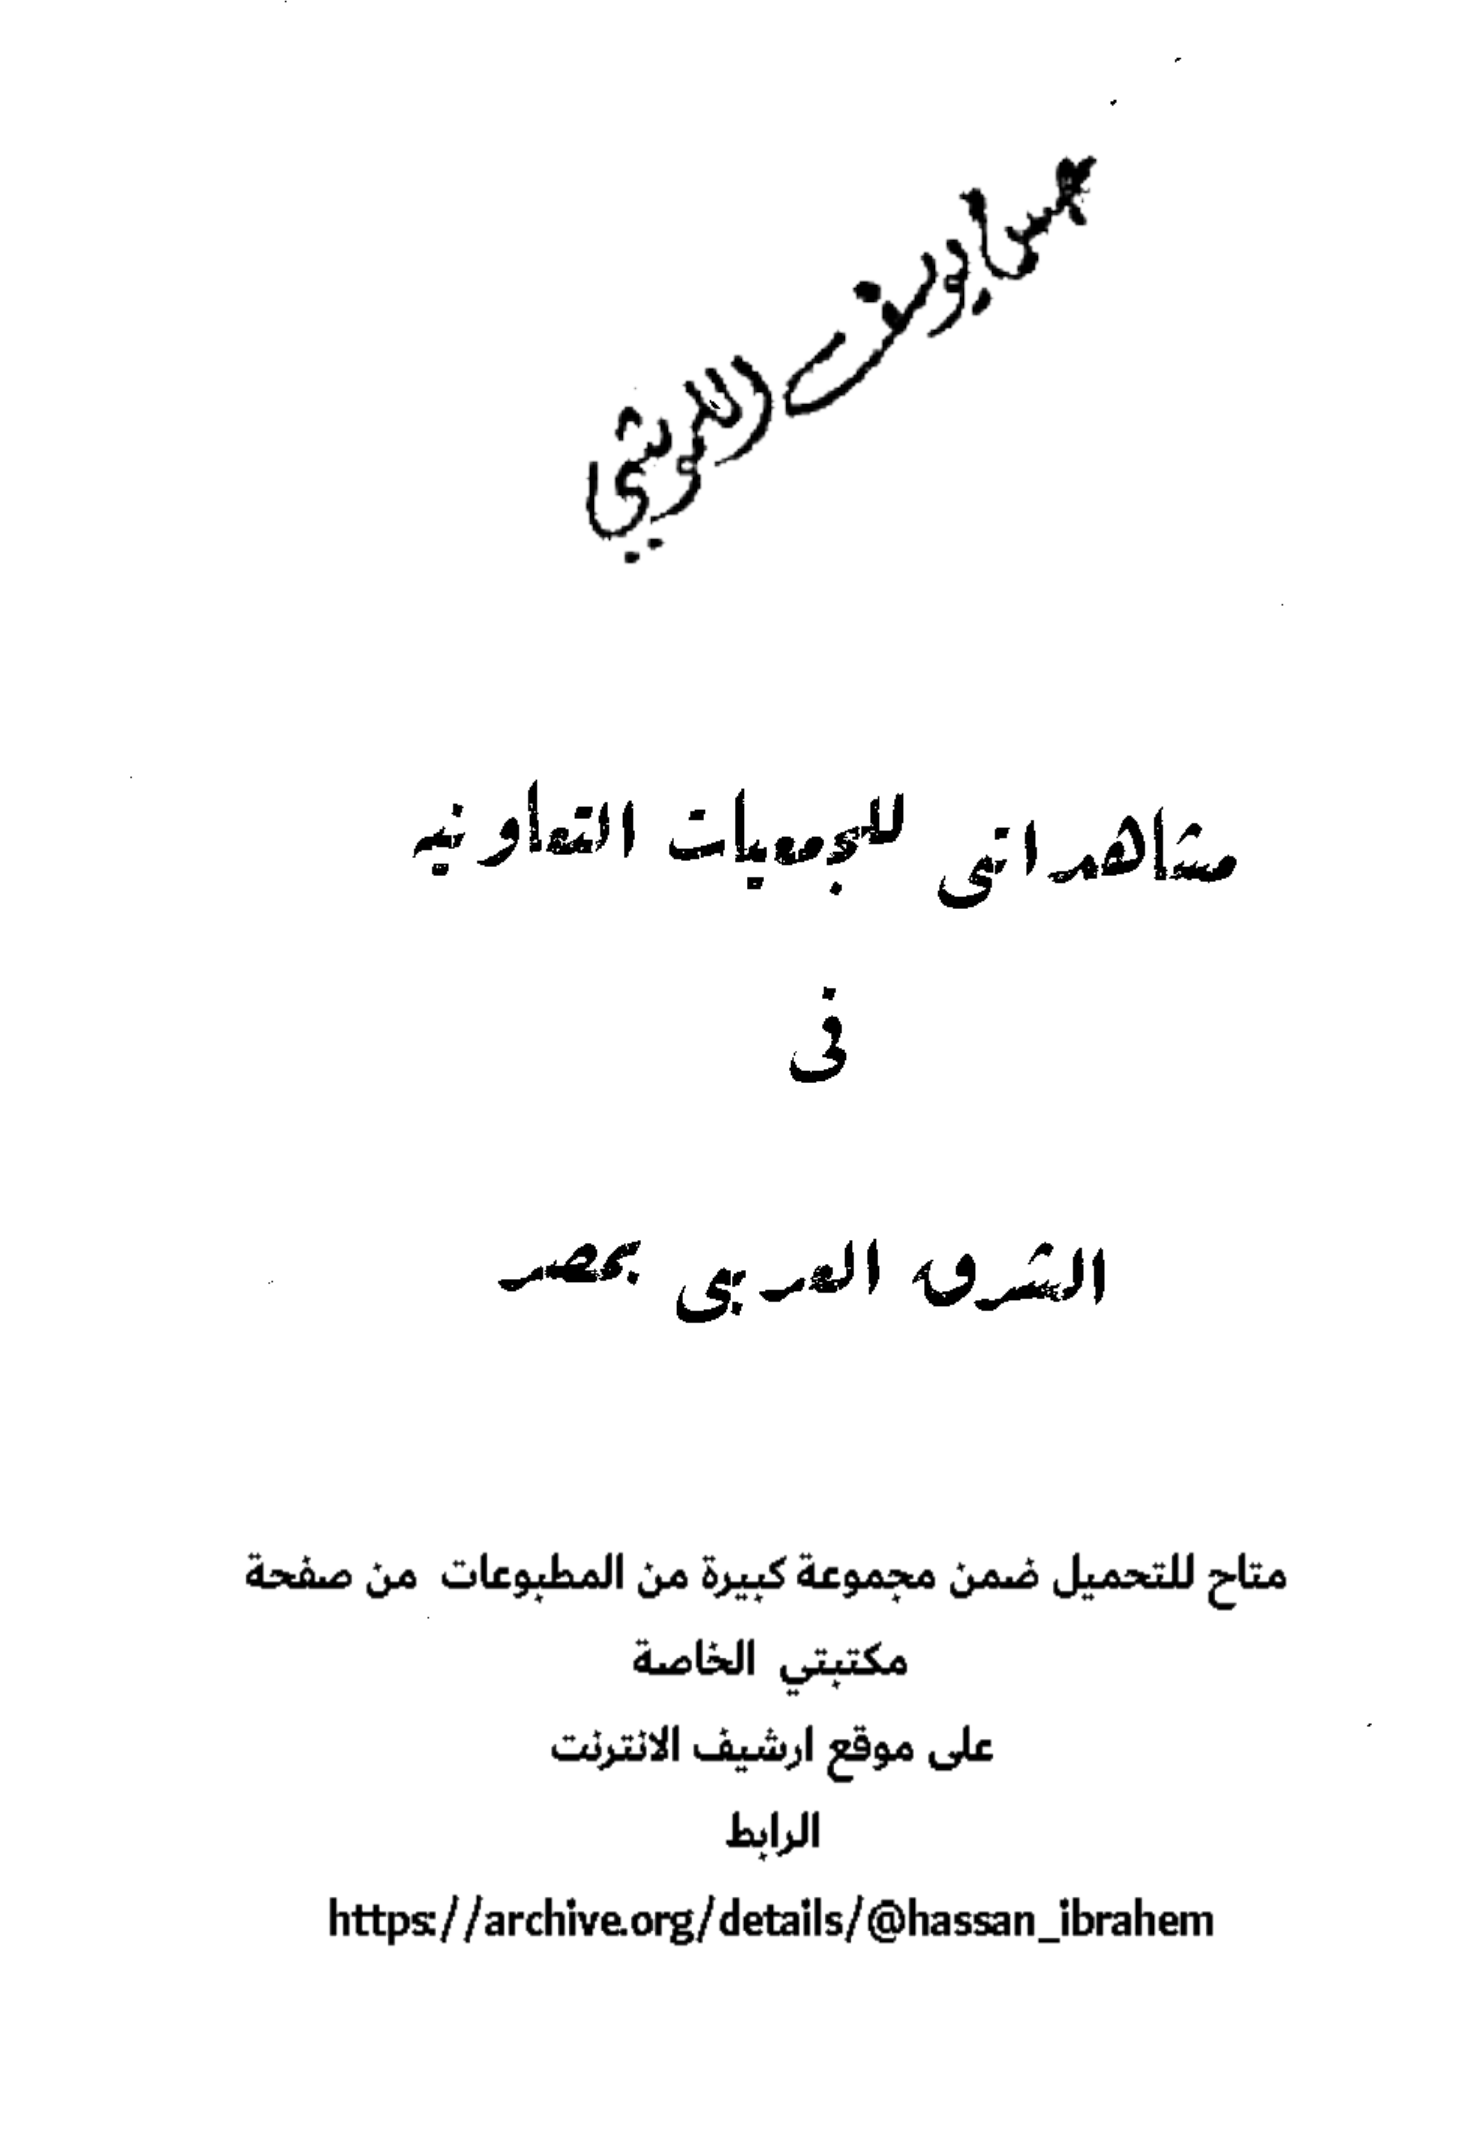 يوسف
مشاهداتى للجمعيات التعاونيه
فى
الشرق العربى بمصر
متاح للتحميل ضمن مجموعة كبيرة من المطبوعات من صفحة
مكتبتي الخاصة
على موقع ارشيف الانترنت
الرابط
https://archive.org/details/@hassan_ibrahem